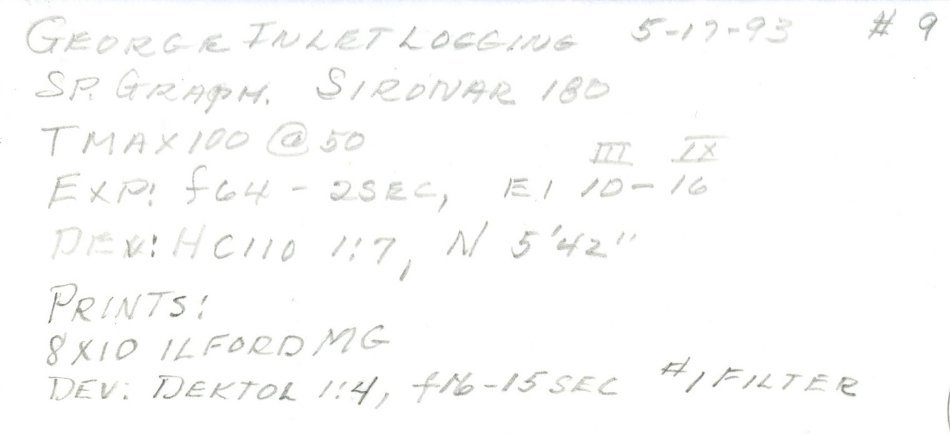 GEORGE INLET LOGGING 5-17-93 # 9
SP. GRAPH. SIRONAR 180
TMAX 100 @ 50
III IX
EXP: f64 - 2SEC, EI 10-16
DEV: HC110 1:7, N 5'42"
PRINTS:
8X10 ILFORD MG
DEV: DEKTOL 1:4, f16-15 SEC #1 FILTER